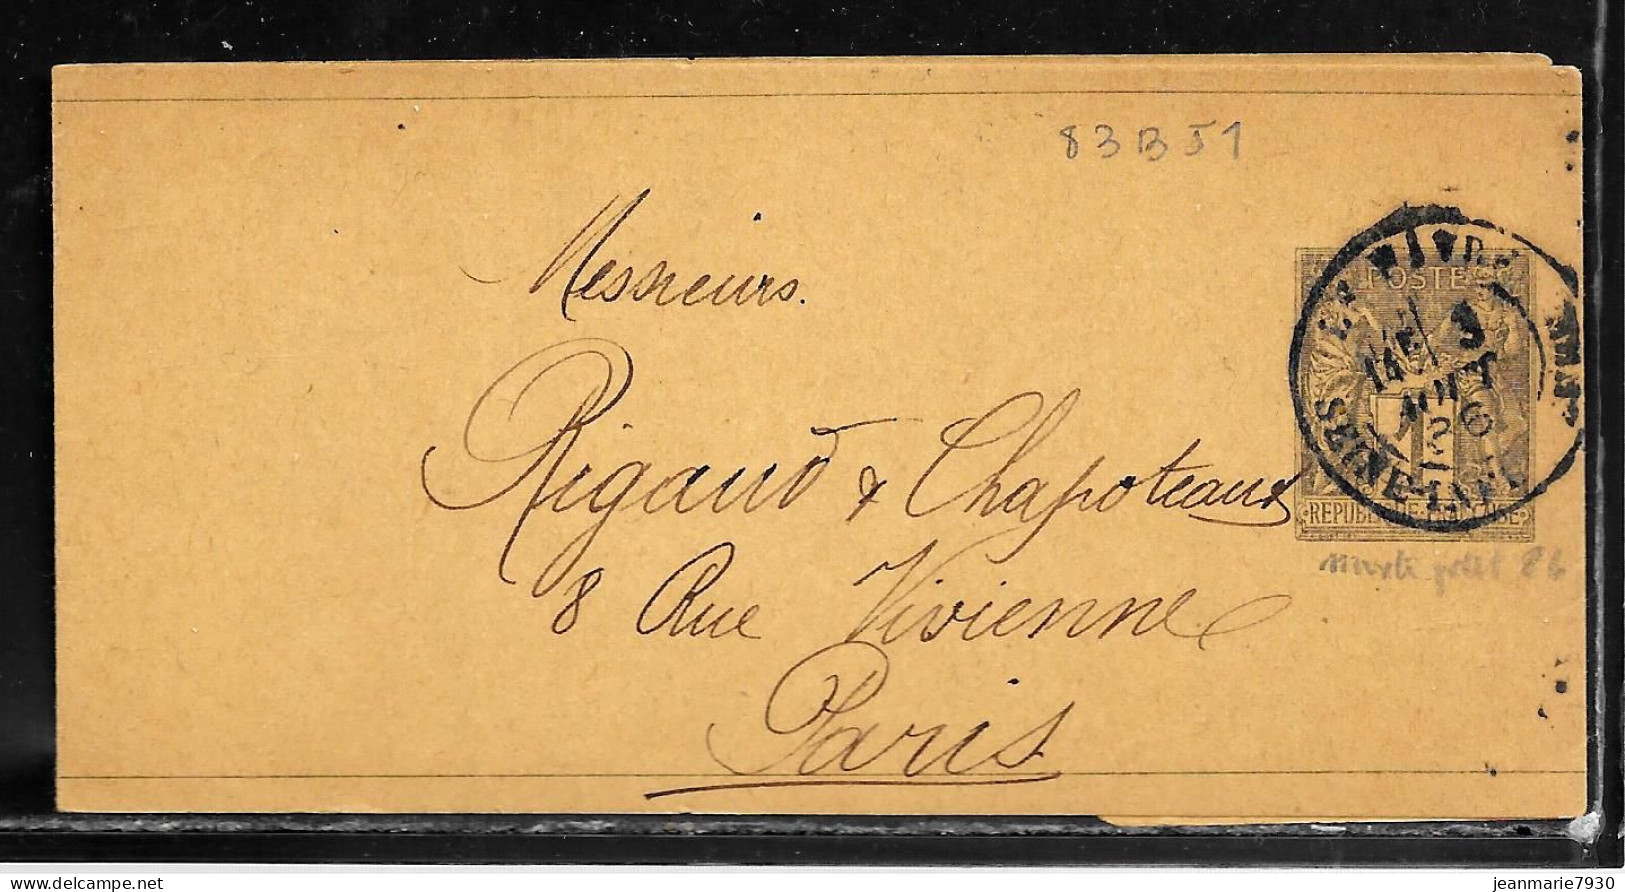 83B51
Messieurs.
Rigaud & Chapoteaux
8 Rue Vivienne
Paris
POSTE
1
REPUBLIQUE FRANCAISE
LE HAVRE
SEINE-INFRE
AOUT
delcampe.net
jeanmarie7930